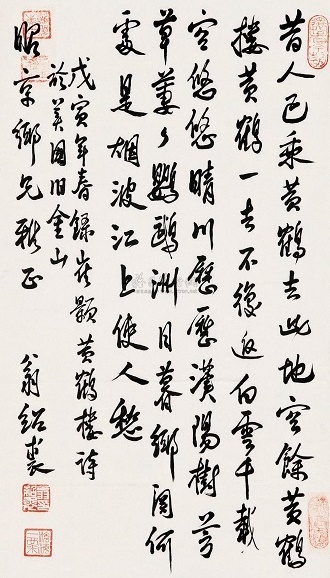 昔人已乘黃鶴去此地空餘黃鶴
樓黃鶴一去不復返白雲千載
空悠悠晴川歷歷漢陽樹芳
草萋々鸚鵡洲日暮鄉關何
處是烟波江上使人愁
戊寅年春錄崔顥黃鶴樓詩
於美國旧金山
昭京鄉兄雅正
翁紹裘